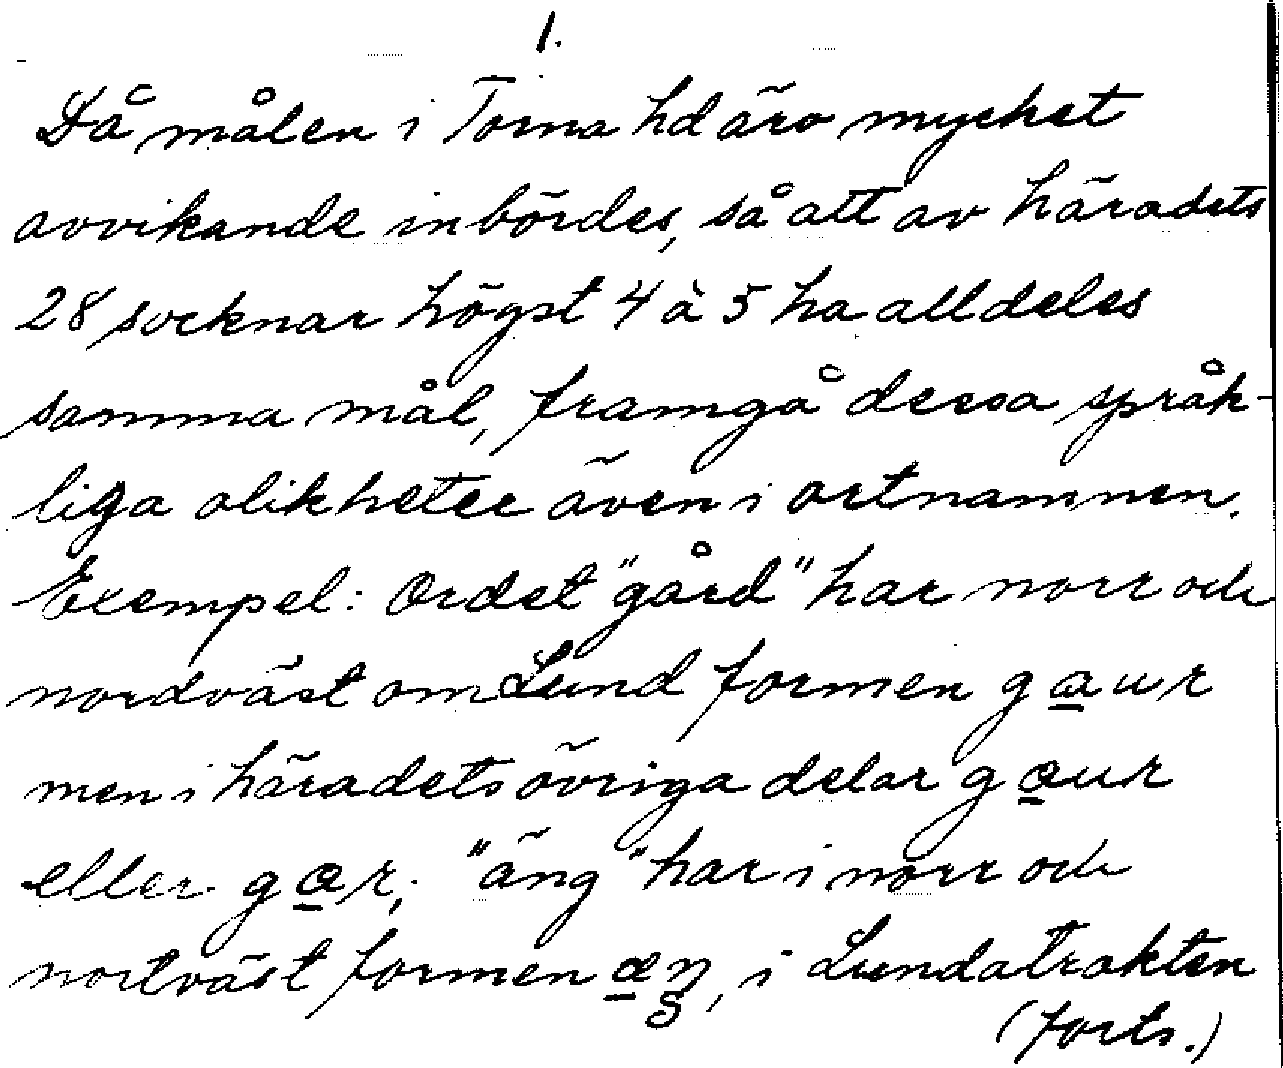 1.
Då målen i Torna hd äro mycket
avvikande inbördes, så att av häradets
28 socknar högst 4 à 5 ha alldeles
samma mål, framgå dessa språk-
liga olikheter även i ortnamnen.
Exempel: Ordet "gård" har norr och
nordväst om Lund formen gaur
men i häradets övriga delar gæur
eller gær; "äng" har i norr och
nortväst formen æŋ, i Lundatrakten
(forts.)